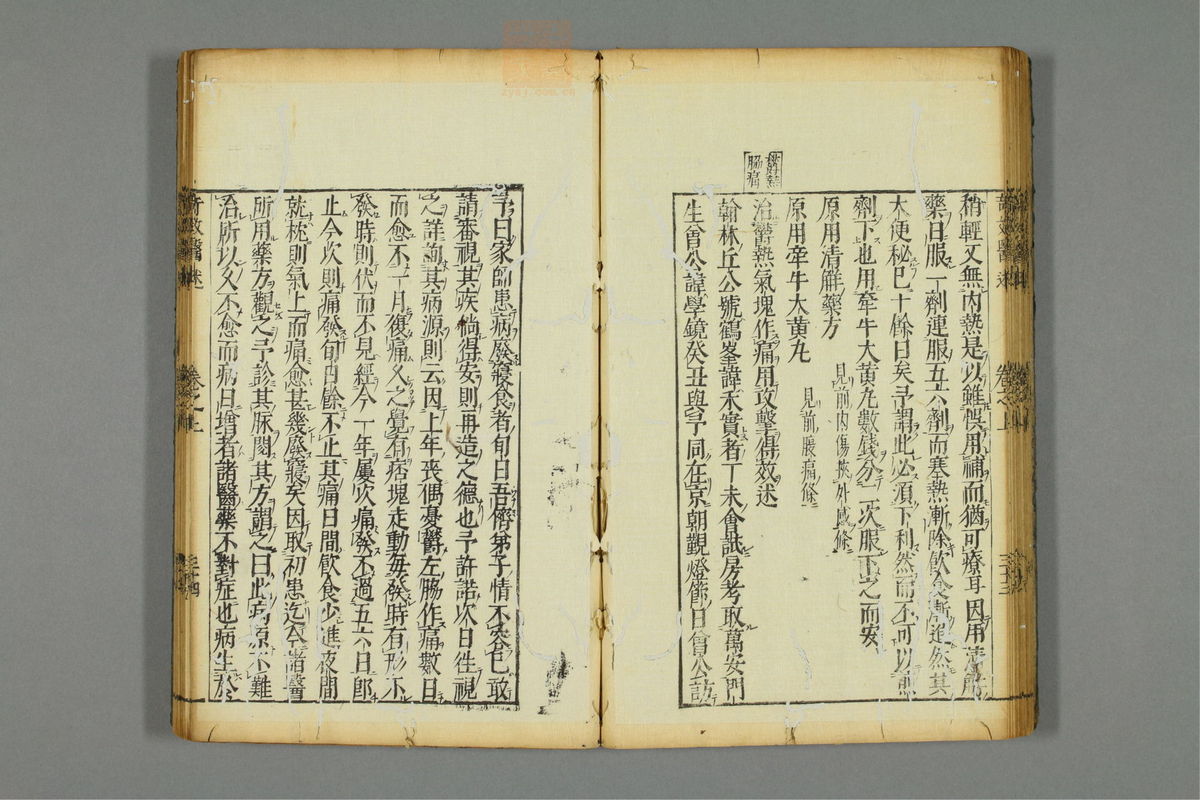 稍輕又無內熱是以雖悞用補而猶可療耳因用清解
藥日服一劑連服五六劑而寒熱漸除飲食漸進然其
大便秘已十餘日矣予謂此必須下利然而不可以煎
劑下也用牽牛大黄丸數錢分二次服下之而安
原用清解藥方 見前內傷挾外感條
原用牽牛大黄丸 見前腹痛條
鬱熱
脇痛
治鬱熱氣塊作痛用攻擊得效述
翰林丘公號鶴峯諱禾實者丁未會試房考取萬安門
生曾公諱學鏡癸丑與予同在京朝觀燈節日曾公訪
予曰家師患病廢寢食者旬日吾儕弟子情不容已敢
請審視其疾倘得安則再造之德也予許諾次日往視
之詳詢其病源則云因上年喪偶憂鬱左脇作痛數日
而愈不一月復痛久之覺有痞塊走動每發時有形不
發時則伏而不見經今一年屢次痛發不過五六日即
止今次則痛發旬日餘不止其痛日間飲食少進夜間
就枕則氣上而痛愈甚幾廢寢矣因取初患迄今諸醫
所用藥方觀之予診其脉閱其方謂之曰此病原不難
治所以久不愈而病日增者諸醫藥不對症也病生於
奇效醫述
卷之上
三十四